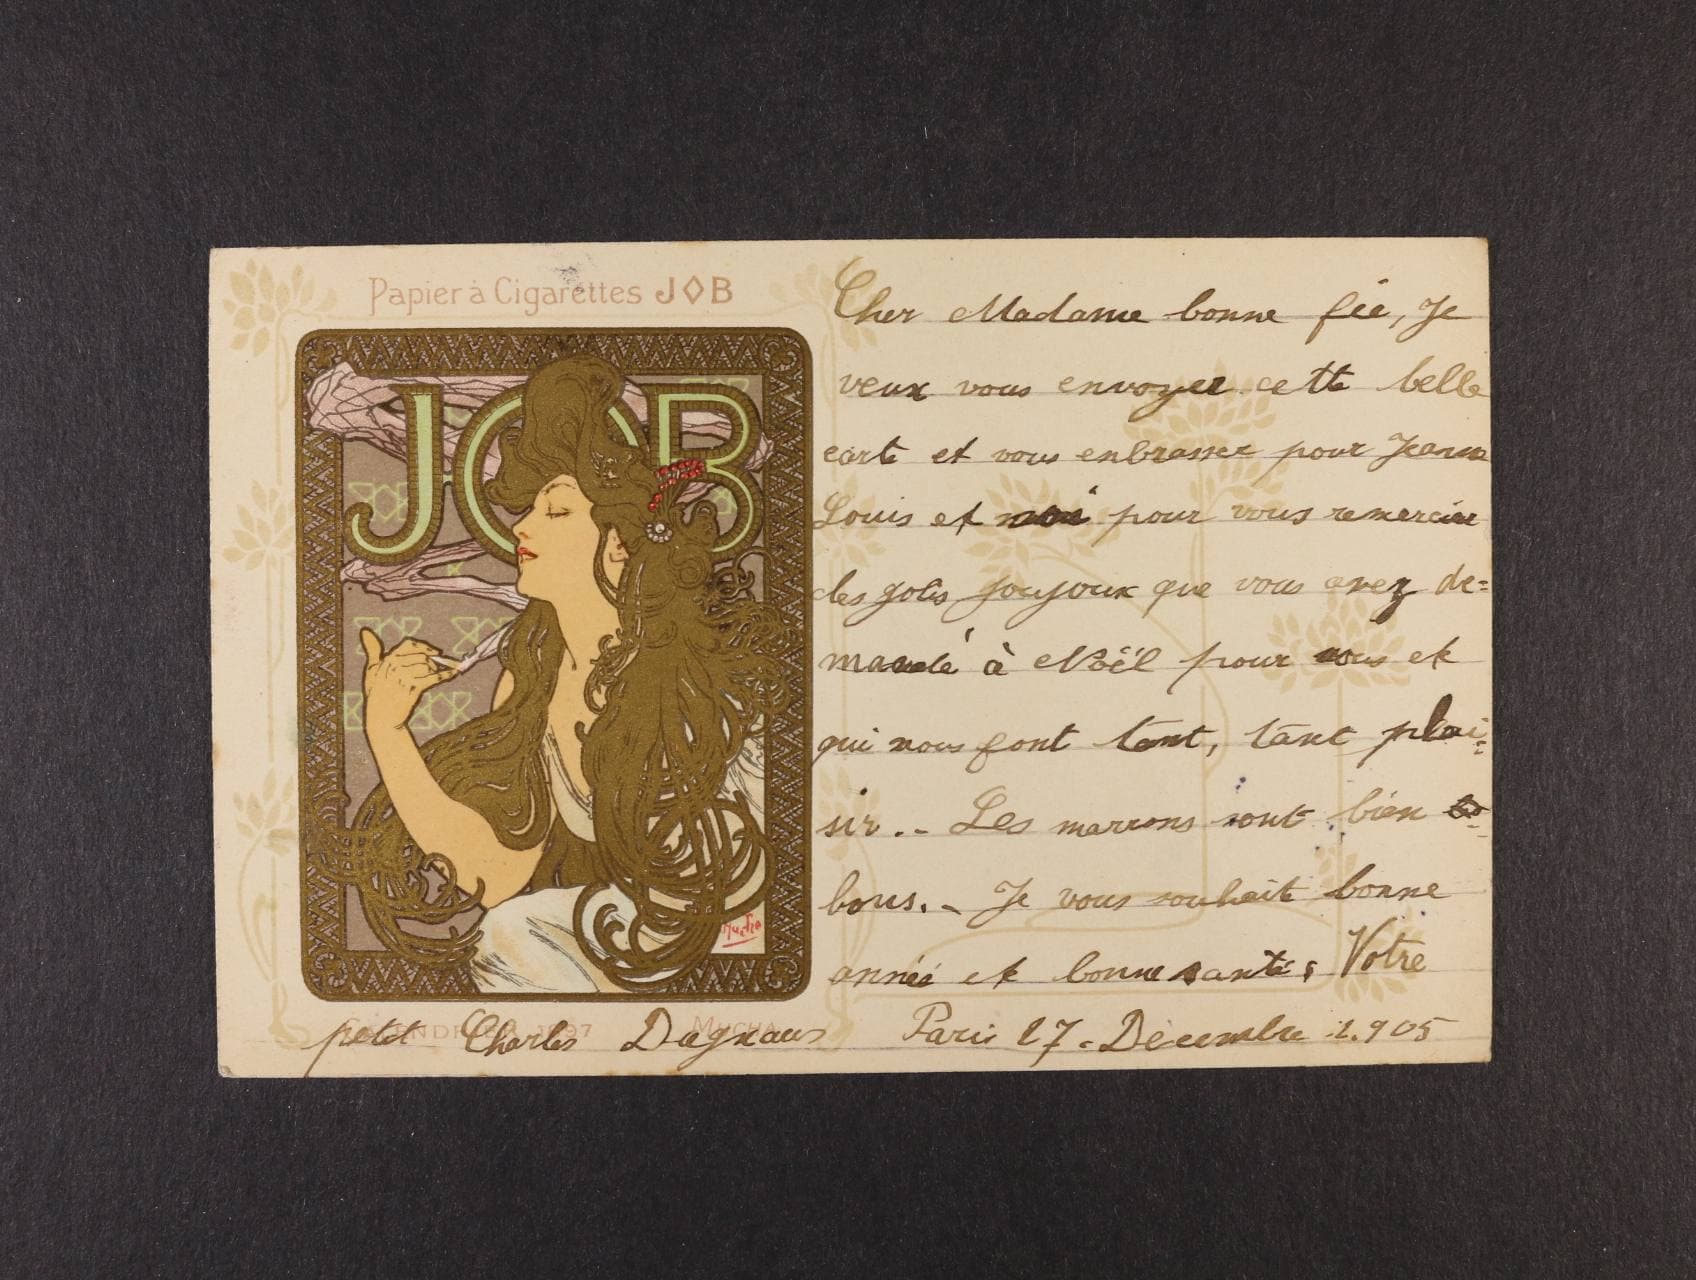 Papier à Cigarettes JOB
JOB
Mucha
CALENDRIER 1897 MUCHA
Cher Madame bonne fée, Je
veux vous envoyer cette belle
carte et vous enbrasser pour Jeanne
Louis et moi pour vous remercier
des jolis joujoux que vous avez de=
mandé à Noël pour nous et
qui nous font tant, tant plai=
sir.- Les marrons sont bien
bons.- Je vous souhaite bonne
année et bonne santé; Votre
petit Charles Dagnaus Paris 27-Décembre 1.905